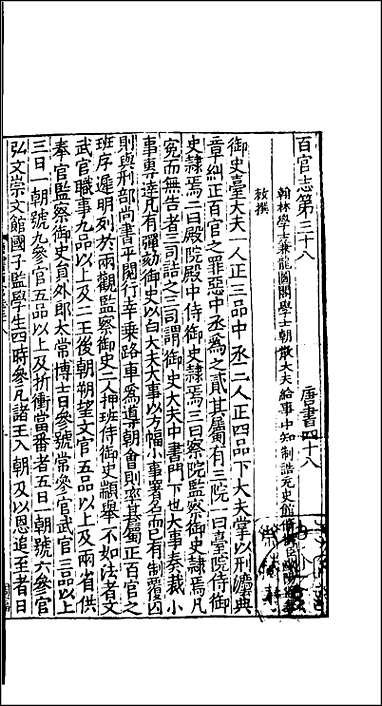 百官志第三十八
唐書四十八
翰林學士兼龍圖閣學士朝散大夫給事中知制誥充史館脩撰臣歐陽脩奉
敕撰
御史臺大夫一人正三品中丞二人正四品下大夫掌以刑灋典
章糾正百官之罪惡中丞爲之貳其屬有三院一曰臺院侍御
史隷焉二曰殿院殿中侍御史隷焉三曰察院監察御史隷焉凡
寃而無告者三司詰之三司謂御史大夫中書門下也大事奏裁小
事專達凡有彈劾御史以白大夫大事以方幅小事署名而已有制覆囚
則與刑部尚書平閱行幸乗路車爲導朝會則率其屬正百官之
班序遲明列於兩觀監察御史二人押班侍御史顓舉不如法者文
武官職事九品以上及二王後朝朔望文官五品以上及兩省供
奉官監察御史員外郎太常博士日參號常參官武官三品以上
三日一朝號九參官五品以上及折衝當番者五日一朝號六參官
弘文崇文館國子監學生四時參凡諸王入朝及以恩追至者日